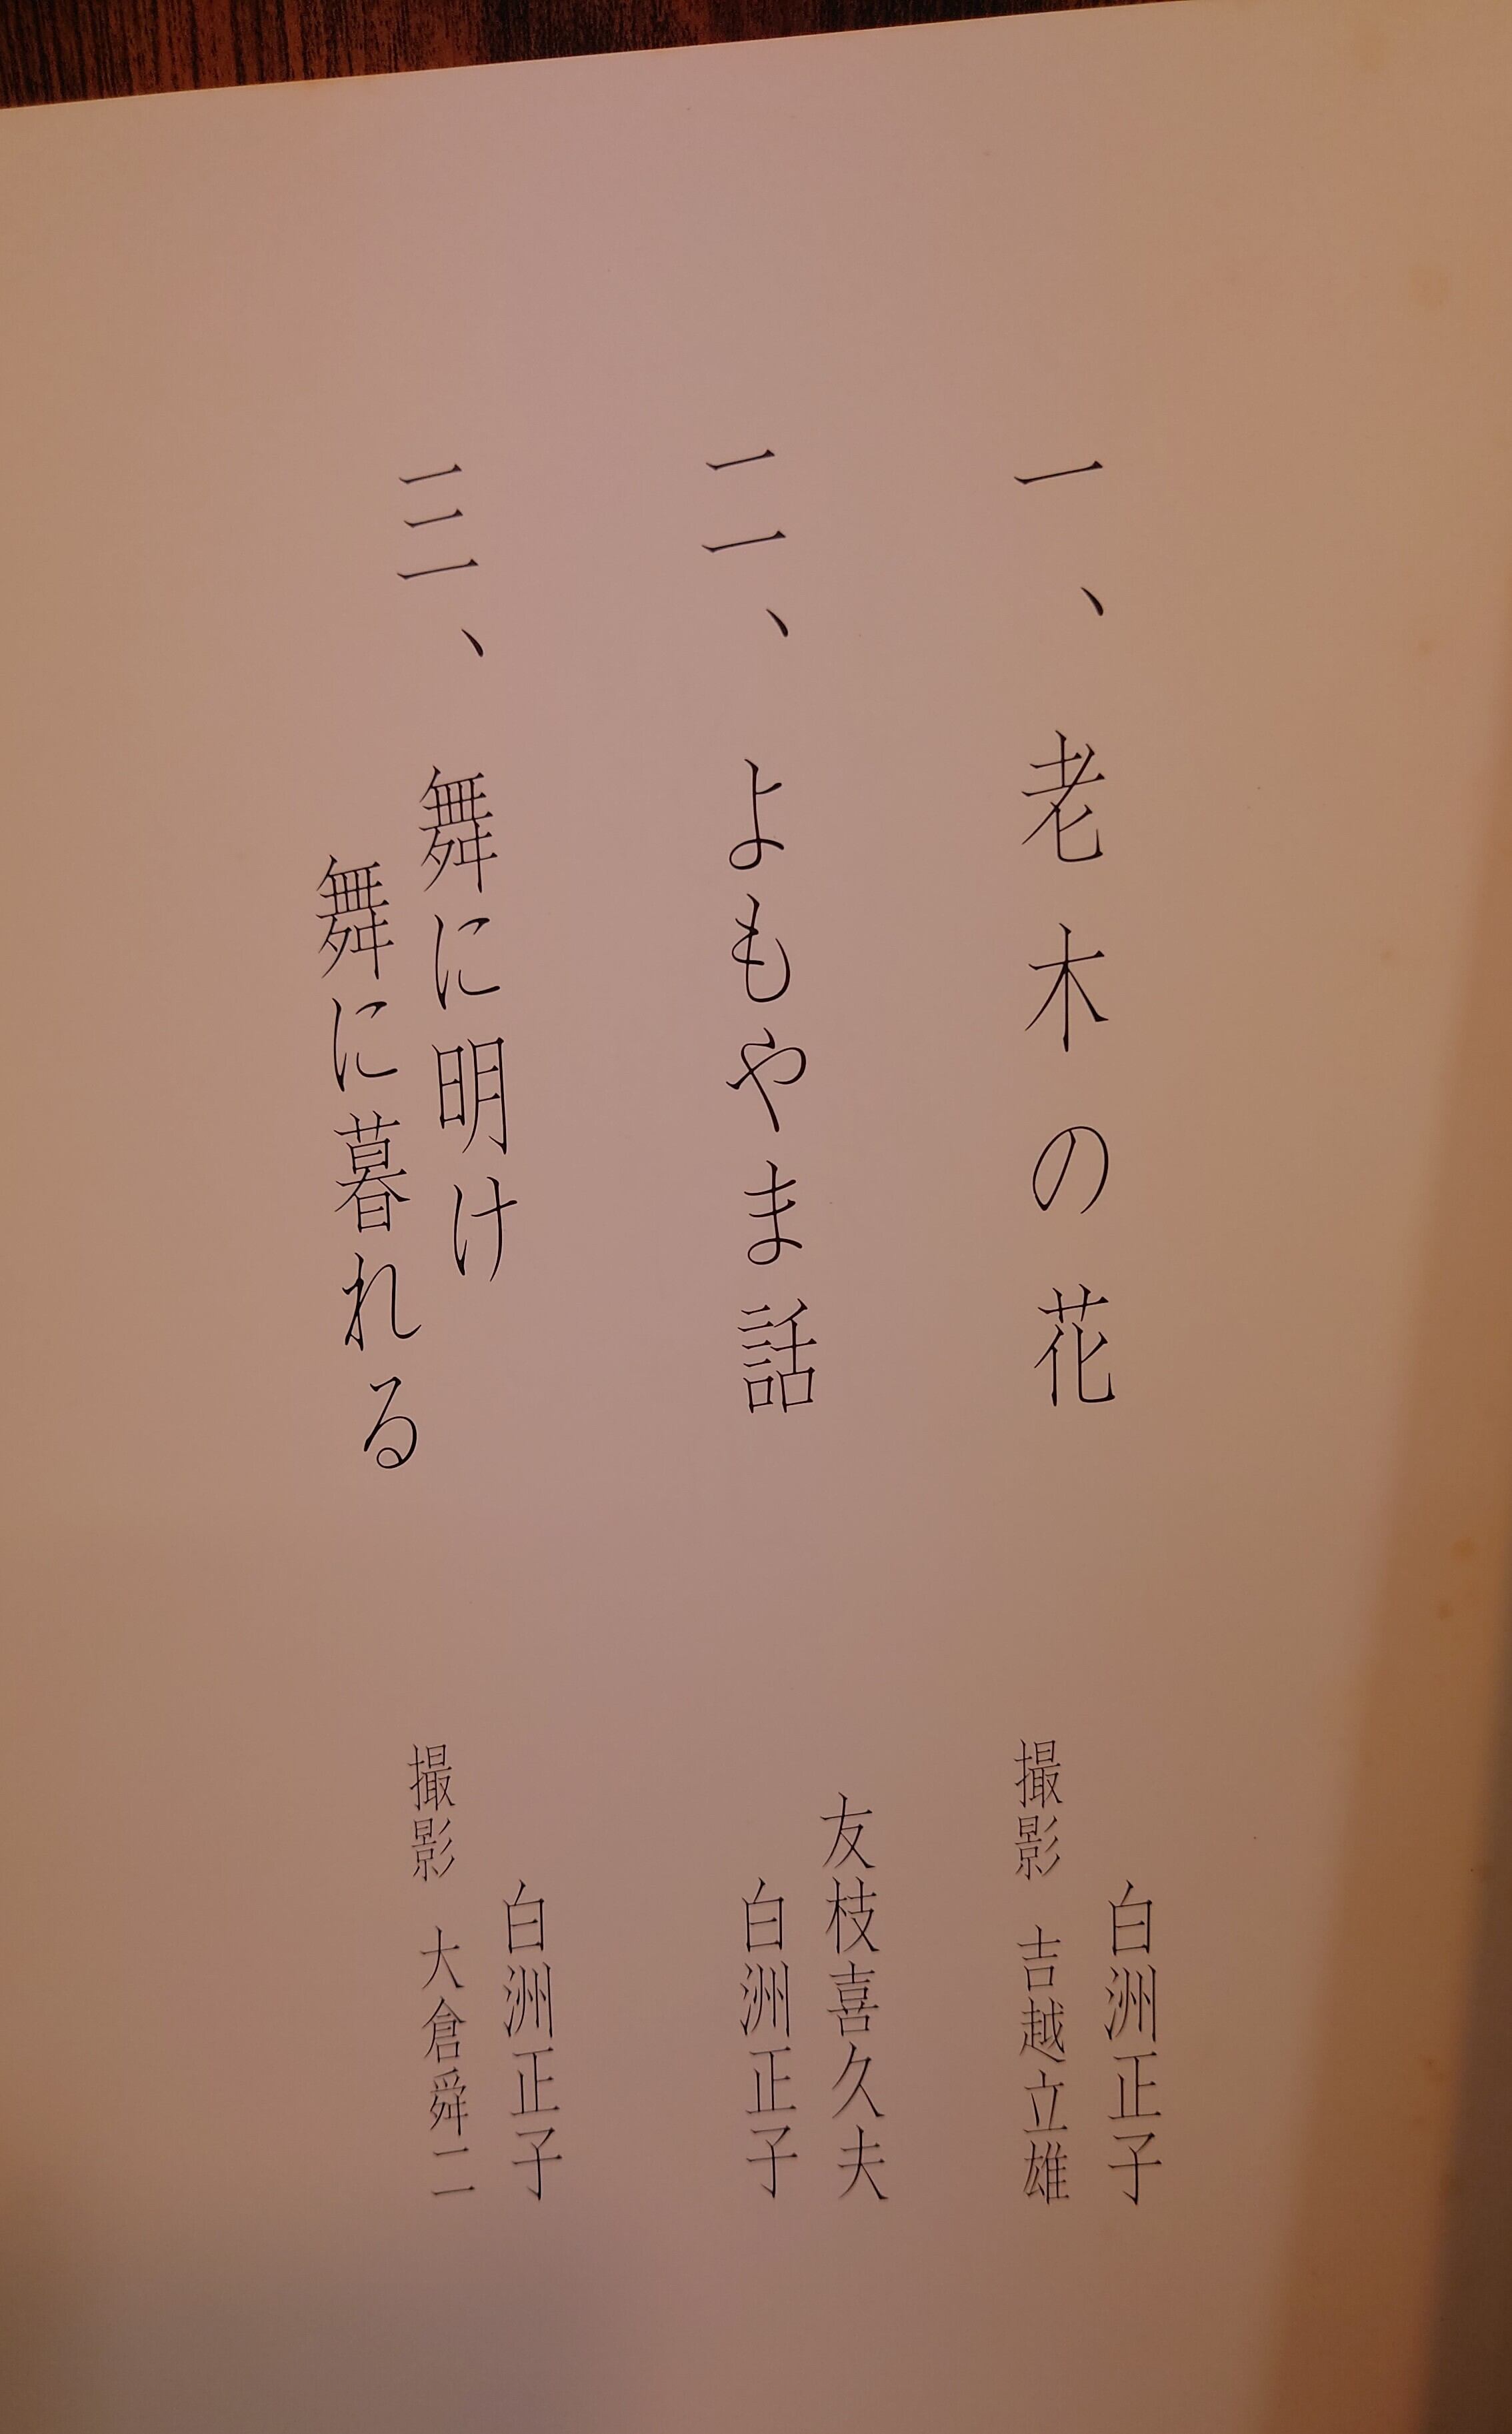 一、老木の花
白洲正子
撮影 吉越立雄
二、よもやま話
友枝喜久夫
白洲正子
三、舞に明け
舞に暮れる
白洲正子
撮影 大倉舜二